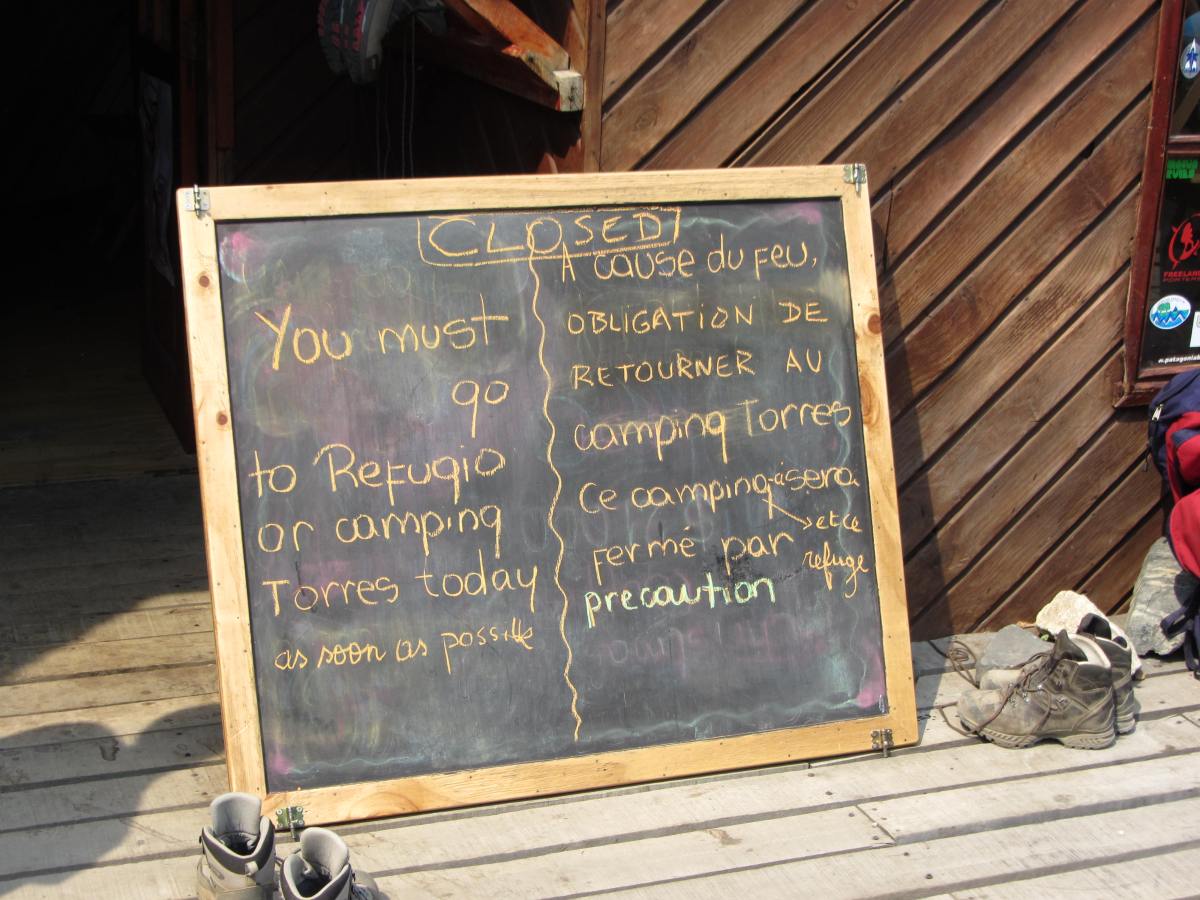 CLOSED
You must
go
to Refugio
or camping
Torres today
as soon as possible
A cause du feu,
OBLIGATION DE
RETOURNER AU
camping Torres
Ce camping sera
et ce
refuge
fermé par
precaution